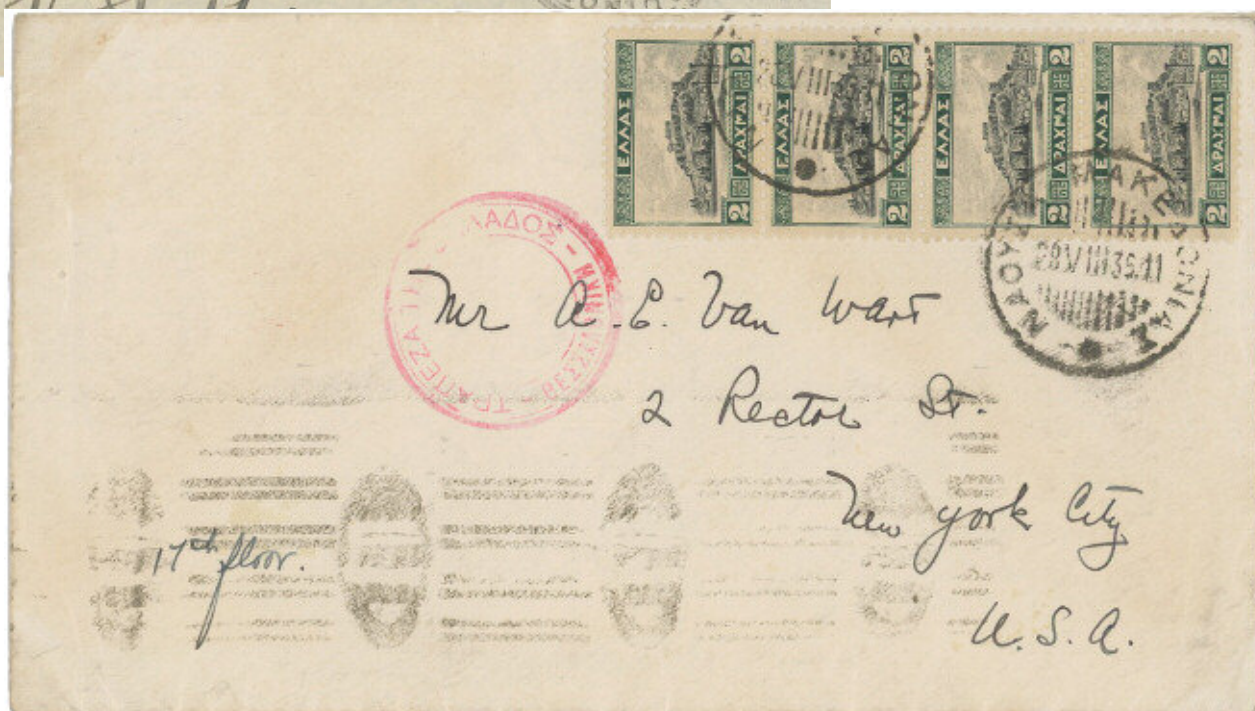 ΕΛΛΑΣ 2 ΔΡΑΧΜΑΙ 2
ΕΛΛΑΣ 2 ΔΡΑΧΜΑΙ 2
ΕΛΛΑΣ 2 ΔΡΑΧΜΑΙ 2
ΕΛΛΑΣ 2 ΔΡΑΧΜΑΙ 2
ΜΑΚΕΔΟΝΙΑΣ
28 VIII 35.11
ΤΡΑΠΕΖΑ ΛΑΔΟΣ
Mr A. E. Van Wart
2 Rector St.
New York City
17th floor.
U.S.A.